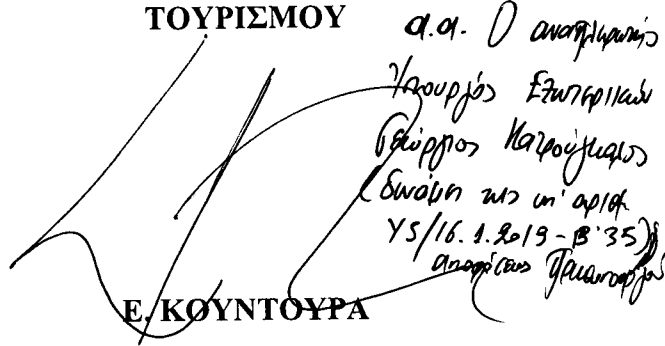 ΤΟΥΡΙΣΜΟΥ
α.α. Ο αναπληρωτής
Υπουργός Εξωτερικών
Γεώργιος Κατρούγκαλος
(δυνάμει της υπ' αριθ.
Υ5/16.1.2019-Β'35)
αποφάσεως Πρωθυπουργού
Ε. ΚΟΥΝΤΟΥΡΑ